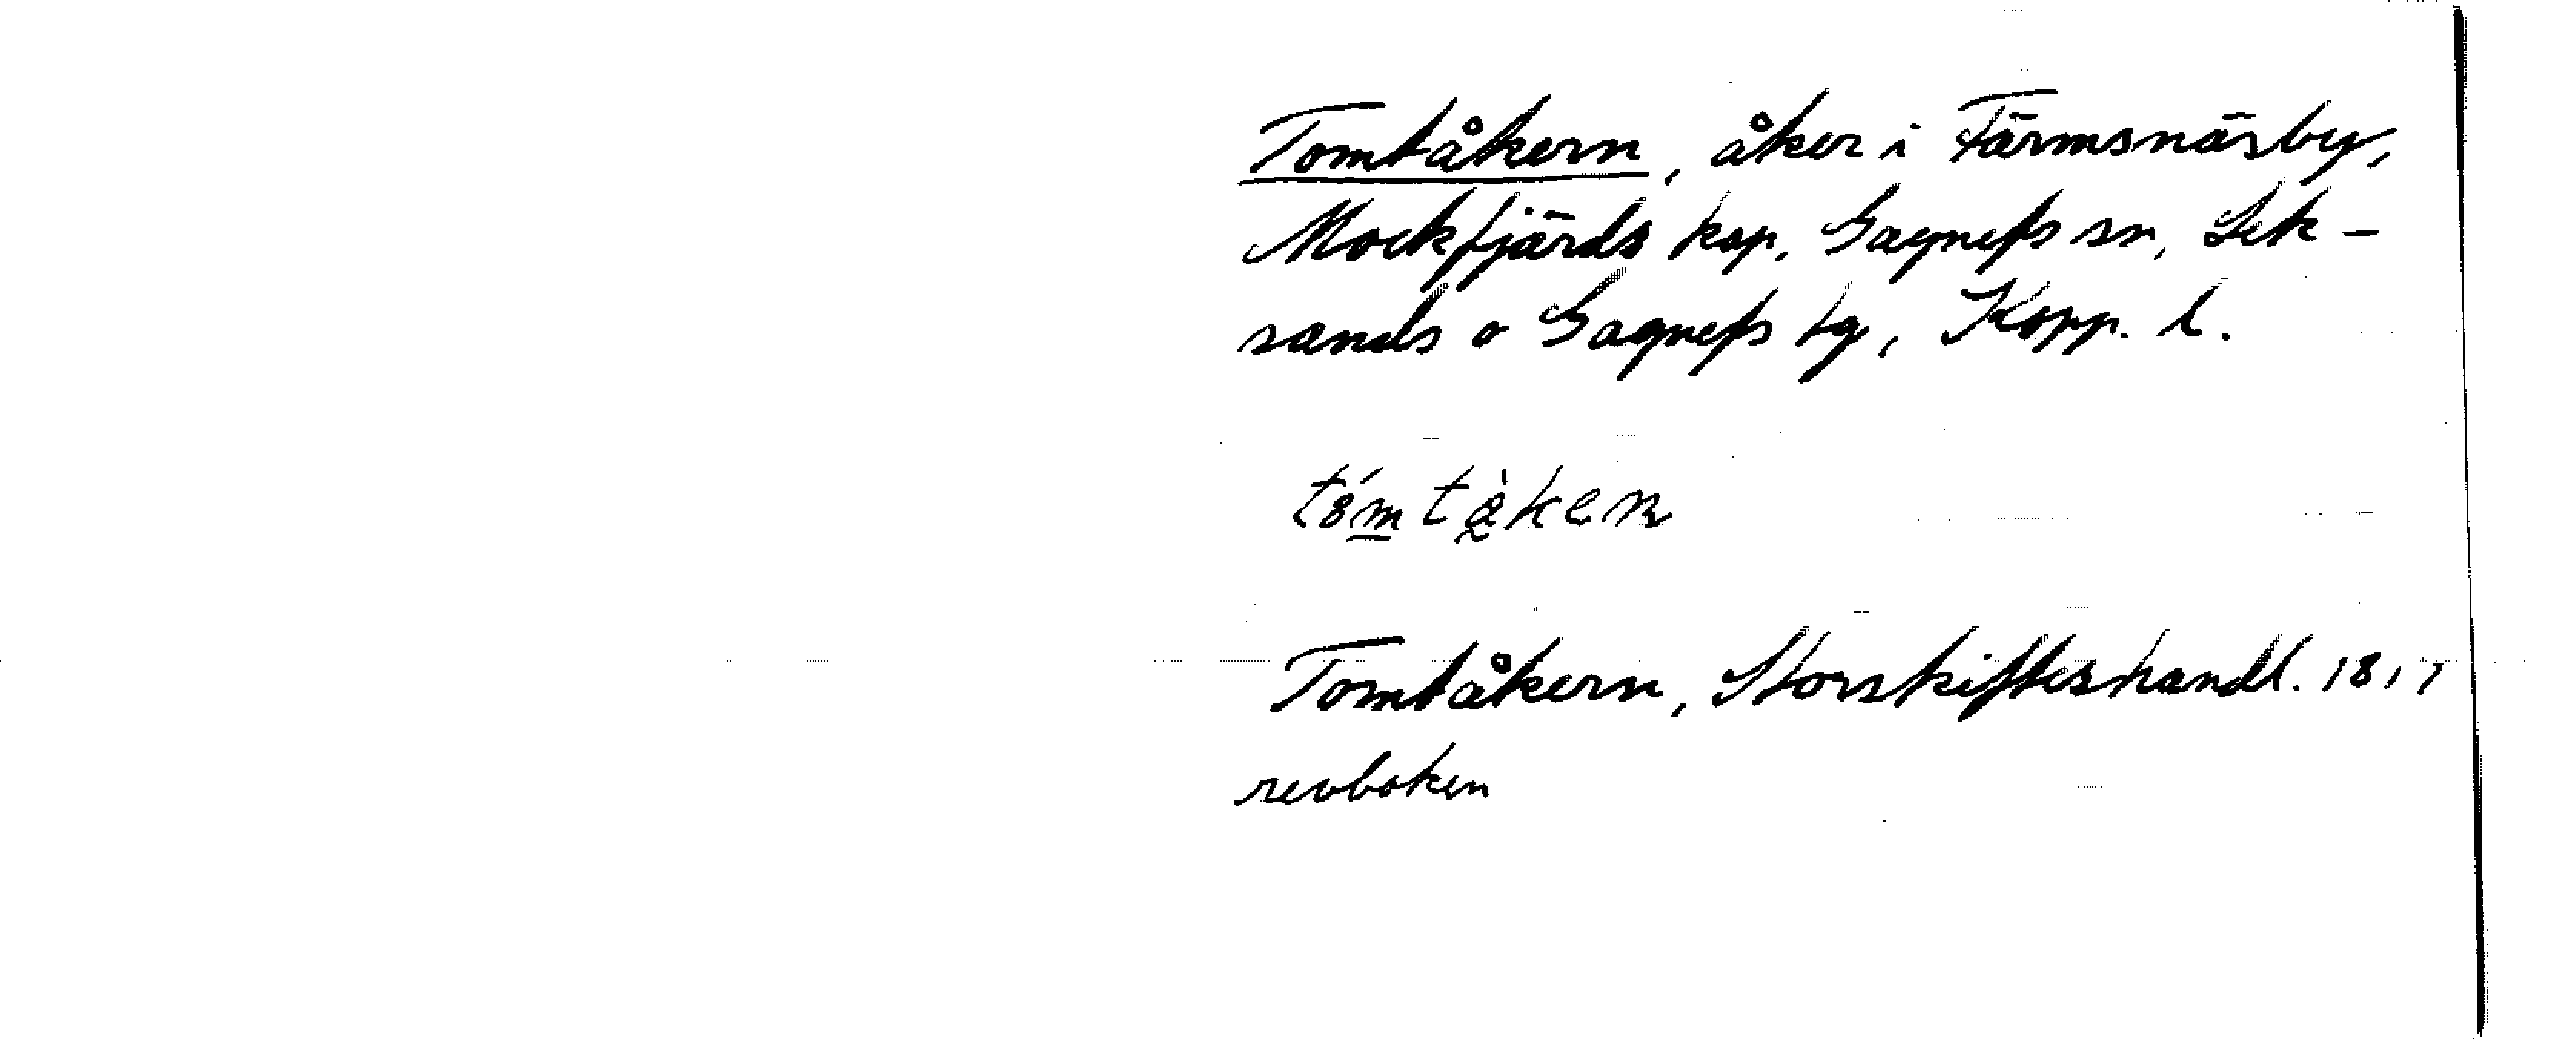 Tomtåkern, åker i Färmsnäsby,
Mockfjärds kap, Gagnefs sn, Lek-
sands o Gagnefs tg, Kopp. l.
Tomtåkern, Storskifteshandl. 1817
revboken